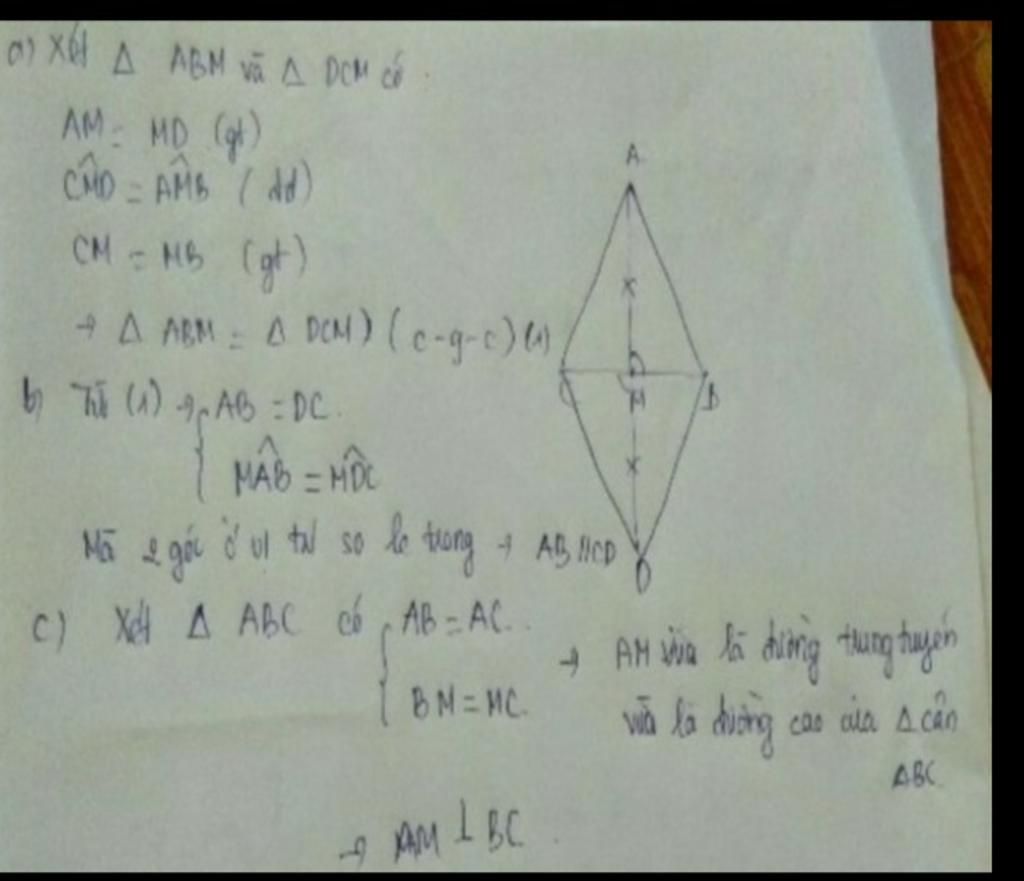 a) Xét Δ ABM và Δ DCM có
AM = MD (gt)
CM̂D = AM̂B (đđ)
CM = MB (gt)
→ Δ ABM = Δ DCM) (c-g-c) (1)
b) Từ (1) → { AB = DC.
MÂB = MD̂C
Mà 2 góc ở vị trí so le trong → AB // CD
c) Xét Δ ABC có { AB = AC.
BM = MC.
→ AM vừa là đường trung tuyến
vừa là đường cao của Δ cân
ΔBC
→ AM ⊥ BC.
A
C
M
B
D